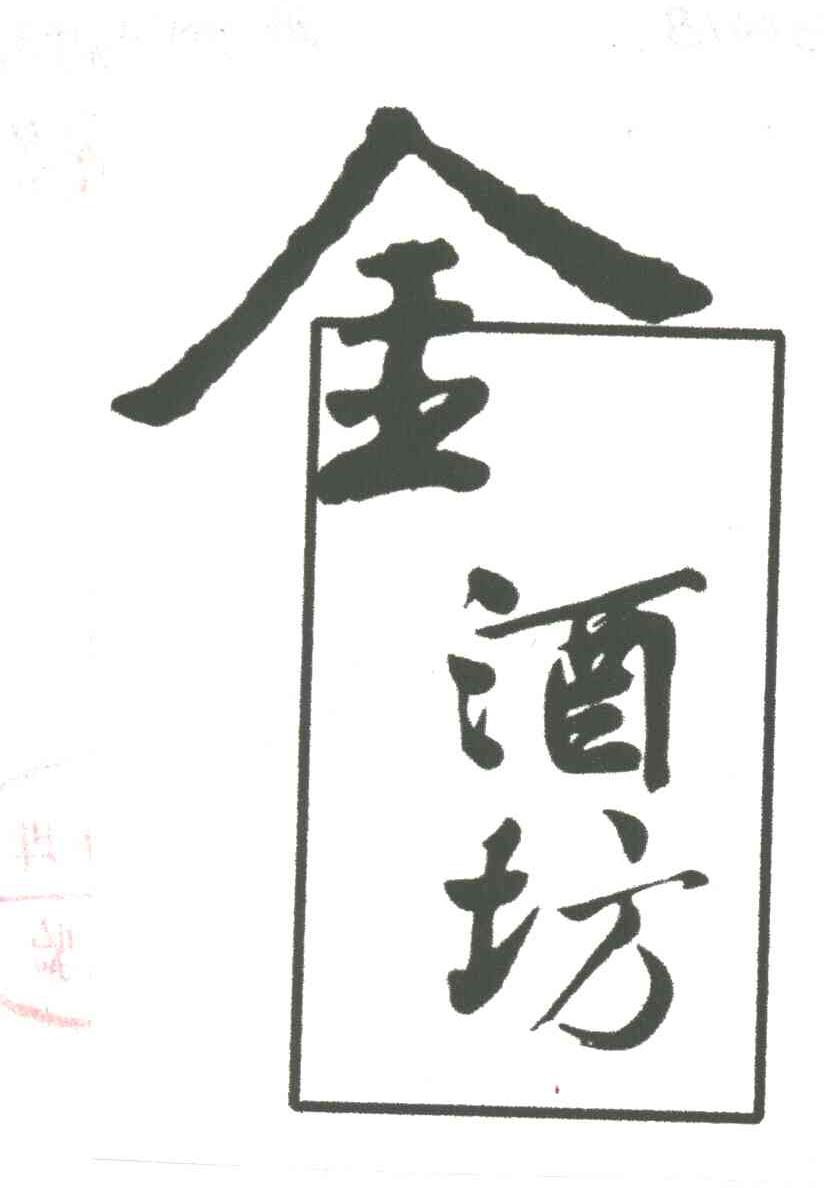 金
酒
坊